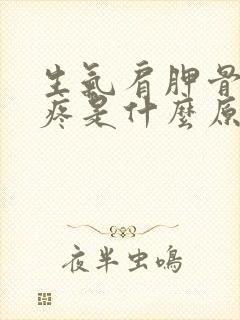 生氣肩胛骨
疼是什麼原
夜半虫鳴